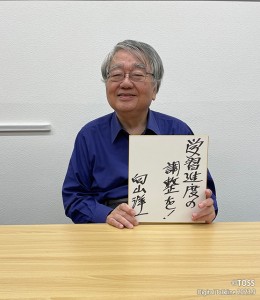 学習進度の
調整を!
向山洋一
©TOSS